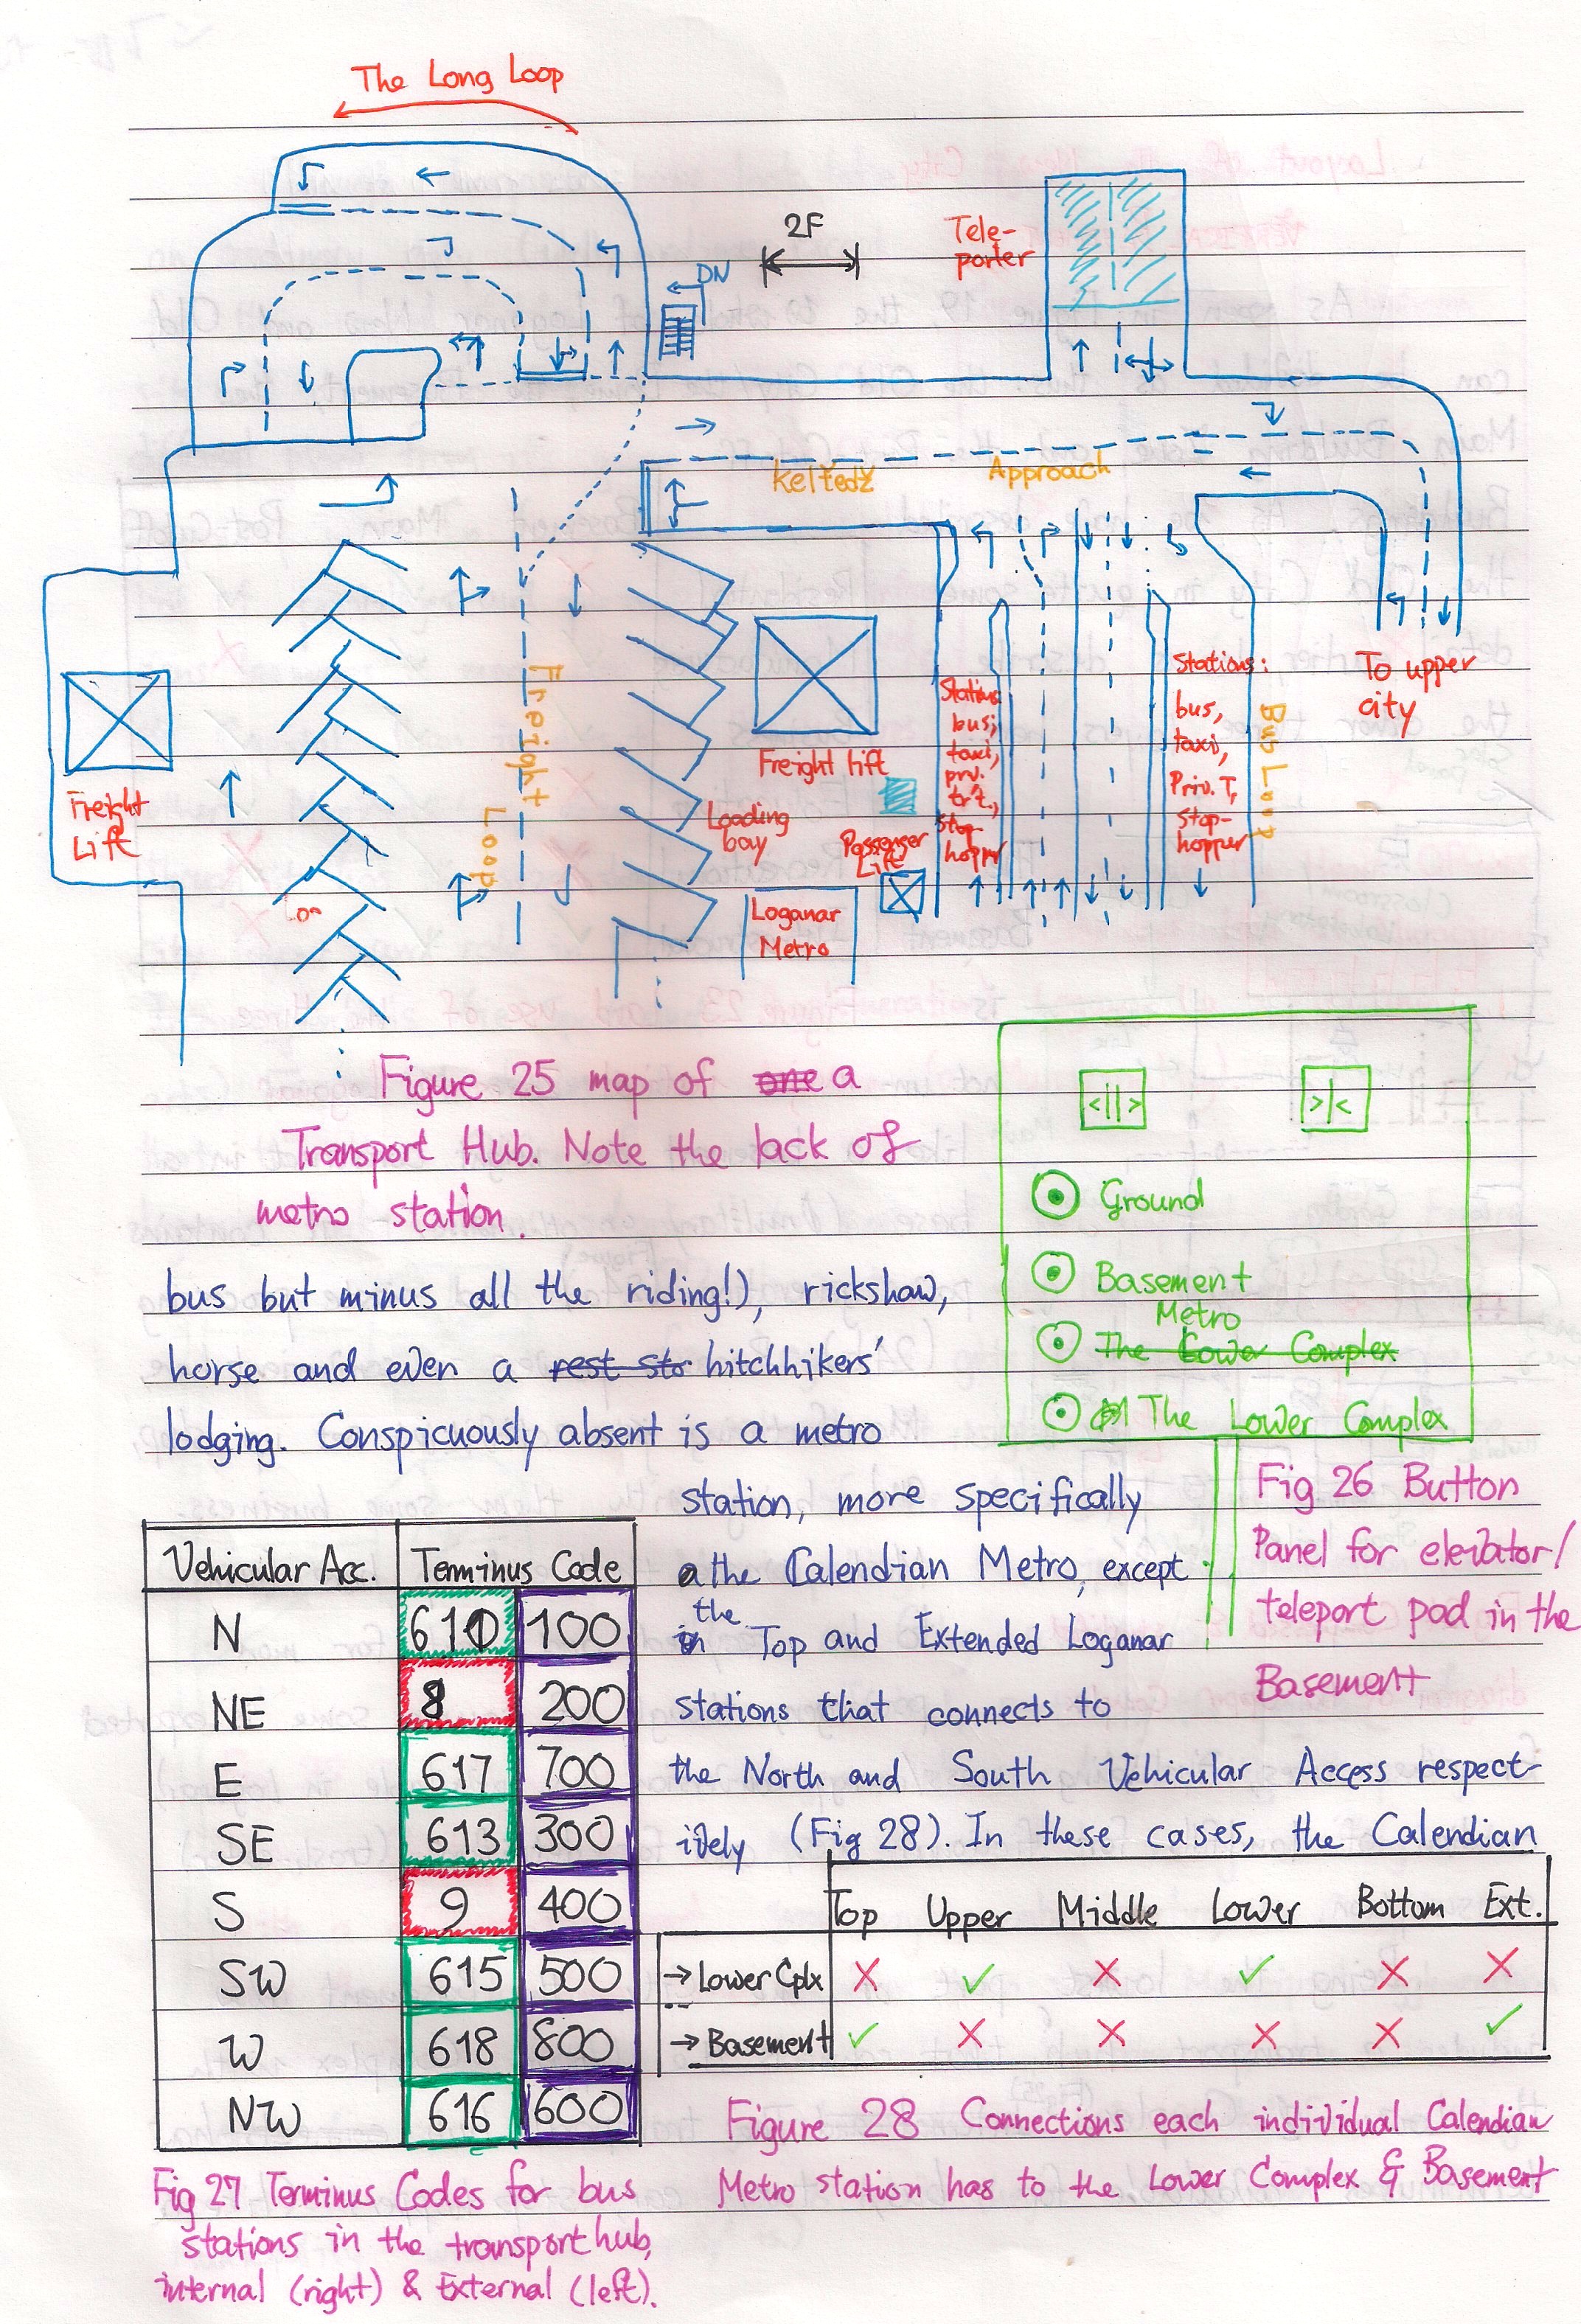 The Long Loop
2F
DN
Tele-
porter
Keltedz Approach
Freight Loop
Freight
Lift
Freight lift
Loading
bay
Passenger
Lift
Loganar
Metro
Stations
bus,
taxi,
prv.
tr't.,
stop-
hopper
Stations:
bus,
taxi,
Priv. T,
stop-
hopper
Bus Loop
To upper
city
Figure 25 map of one a
Transport Hub. Note the lack of
metro station.
<||> >|<
Ground
Basement
Metro
The Lower Complex
The Lower Complex
Fig 26 Button
Panel for elevator/
teleport pod in the
Basement
bus but minus all the riding!), rickshaw,
horse and even a rest sto hitchhikers'
lodging. Conspicuously absent is a metro
station, more specifically
the Calendian Metro, except
in the Top and Extended Loganar
stations that connects to
the North and South Vehicular Access respect-
ively (Fig 28). In these cases, the Calendian
Vehicular Acc. Terminus Code
N 610 100
NE 8 200
E 617 700
SE 613 300
S 9 400
SW 615 500
W 618 800
NW 616 600
Fig 27 Terminus Codes for bus
stations in the transport hub,
internal (right) & External (left).
Top Upper Middle Lower Bottom Ext.
→ Lower Cplx ✗ ✓ ✗ ✓ ✗ ✗
→ Basement ✓ ✗ ✗ ✗ ✗ ✓
Figure 28 Connections each individual Calendian
Metro station has to the Lower Complex & Basement